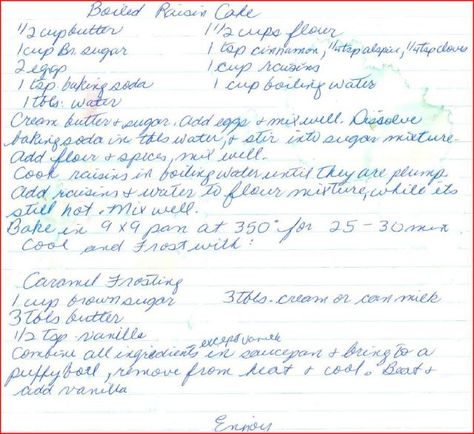 Boiled Raisin Cake
1/2 cup butter 1 1/2 cups flour
1 cup Br. sugar 1 tsp cinnamon, 1/4 tsp alspice, 1/4 tsp cloves
2 eggs 1 cup raisins
1 tsp baking soda 1 cup boiling water
1 tbls. water
Cream butter + sugar. Add eggs + mix well. Dissolve
baking soda in tbls water, + stir into sugar mixture.
Add flour + spices, mix well.
Cook raisins in boiling water until they are plump.
Add raisins + water to flour mixture, while its
still hot. Mix well.
Bake in 9x9 pan at 350° for 25-30 min
Cool and Frost with:
Caramel Frosting
1 cup brown sugar 3 tbls. cream or can milk
3 tbls butter
1/2 tsp vanilla
Combine all ingredients except vanilla in saucepan + bring to a
puffy boil, remove from heat + cool. Beat +
add vanilla
Enjoy